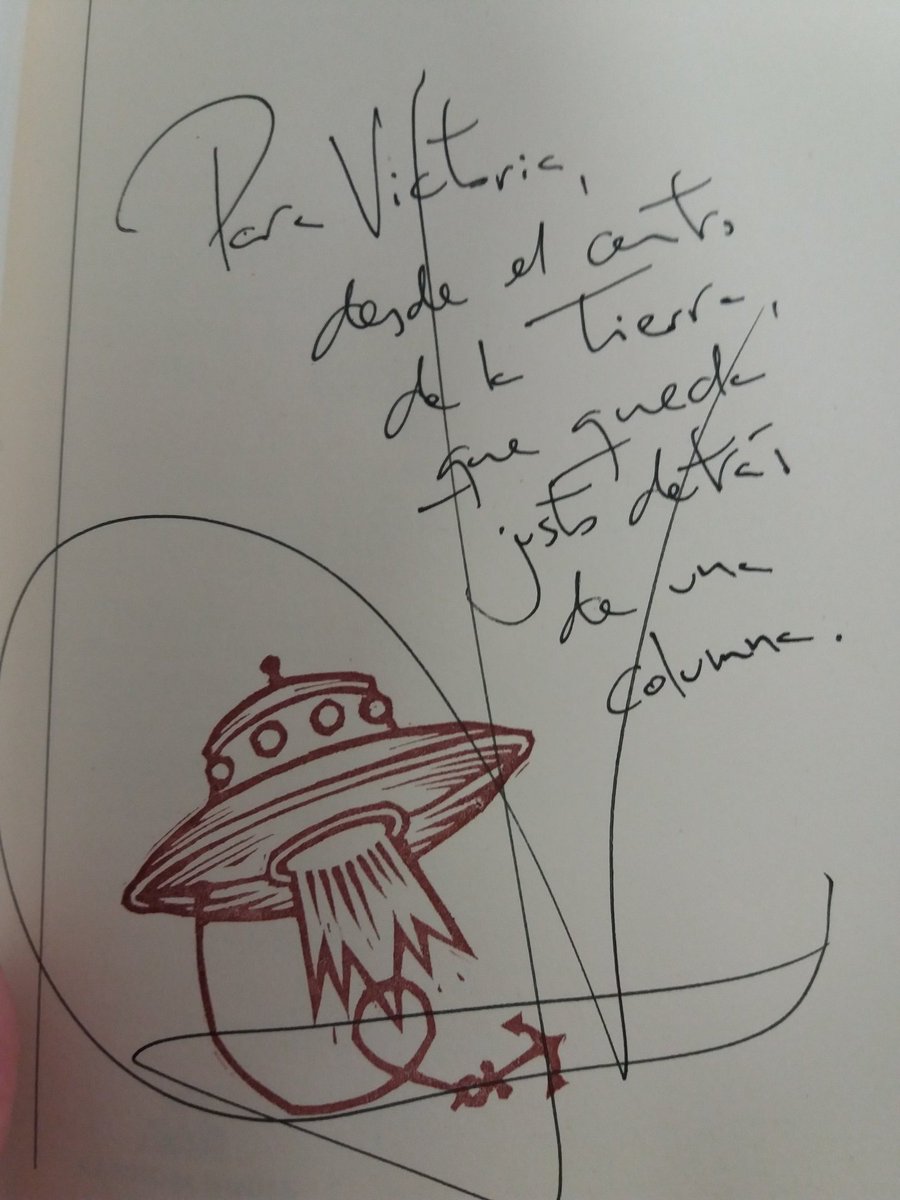 Para Victoria,
desde el centro
de la Tierra,
que queda
justo detrás
de una
columna.